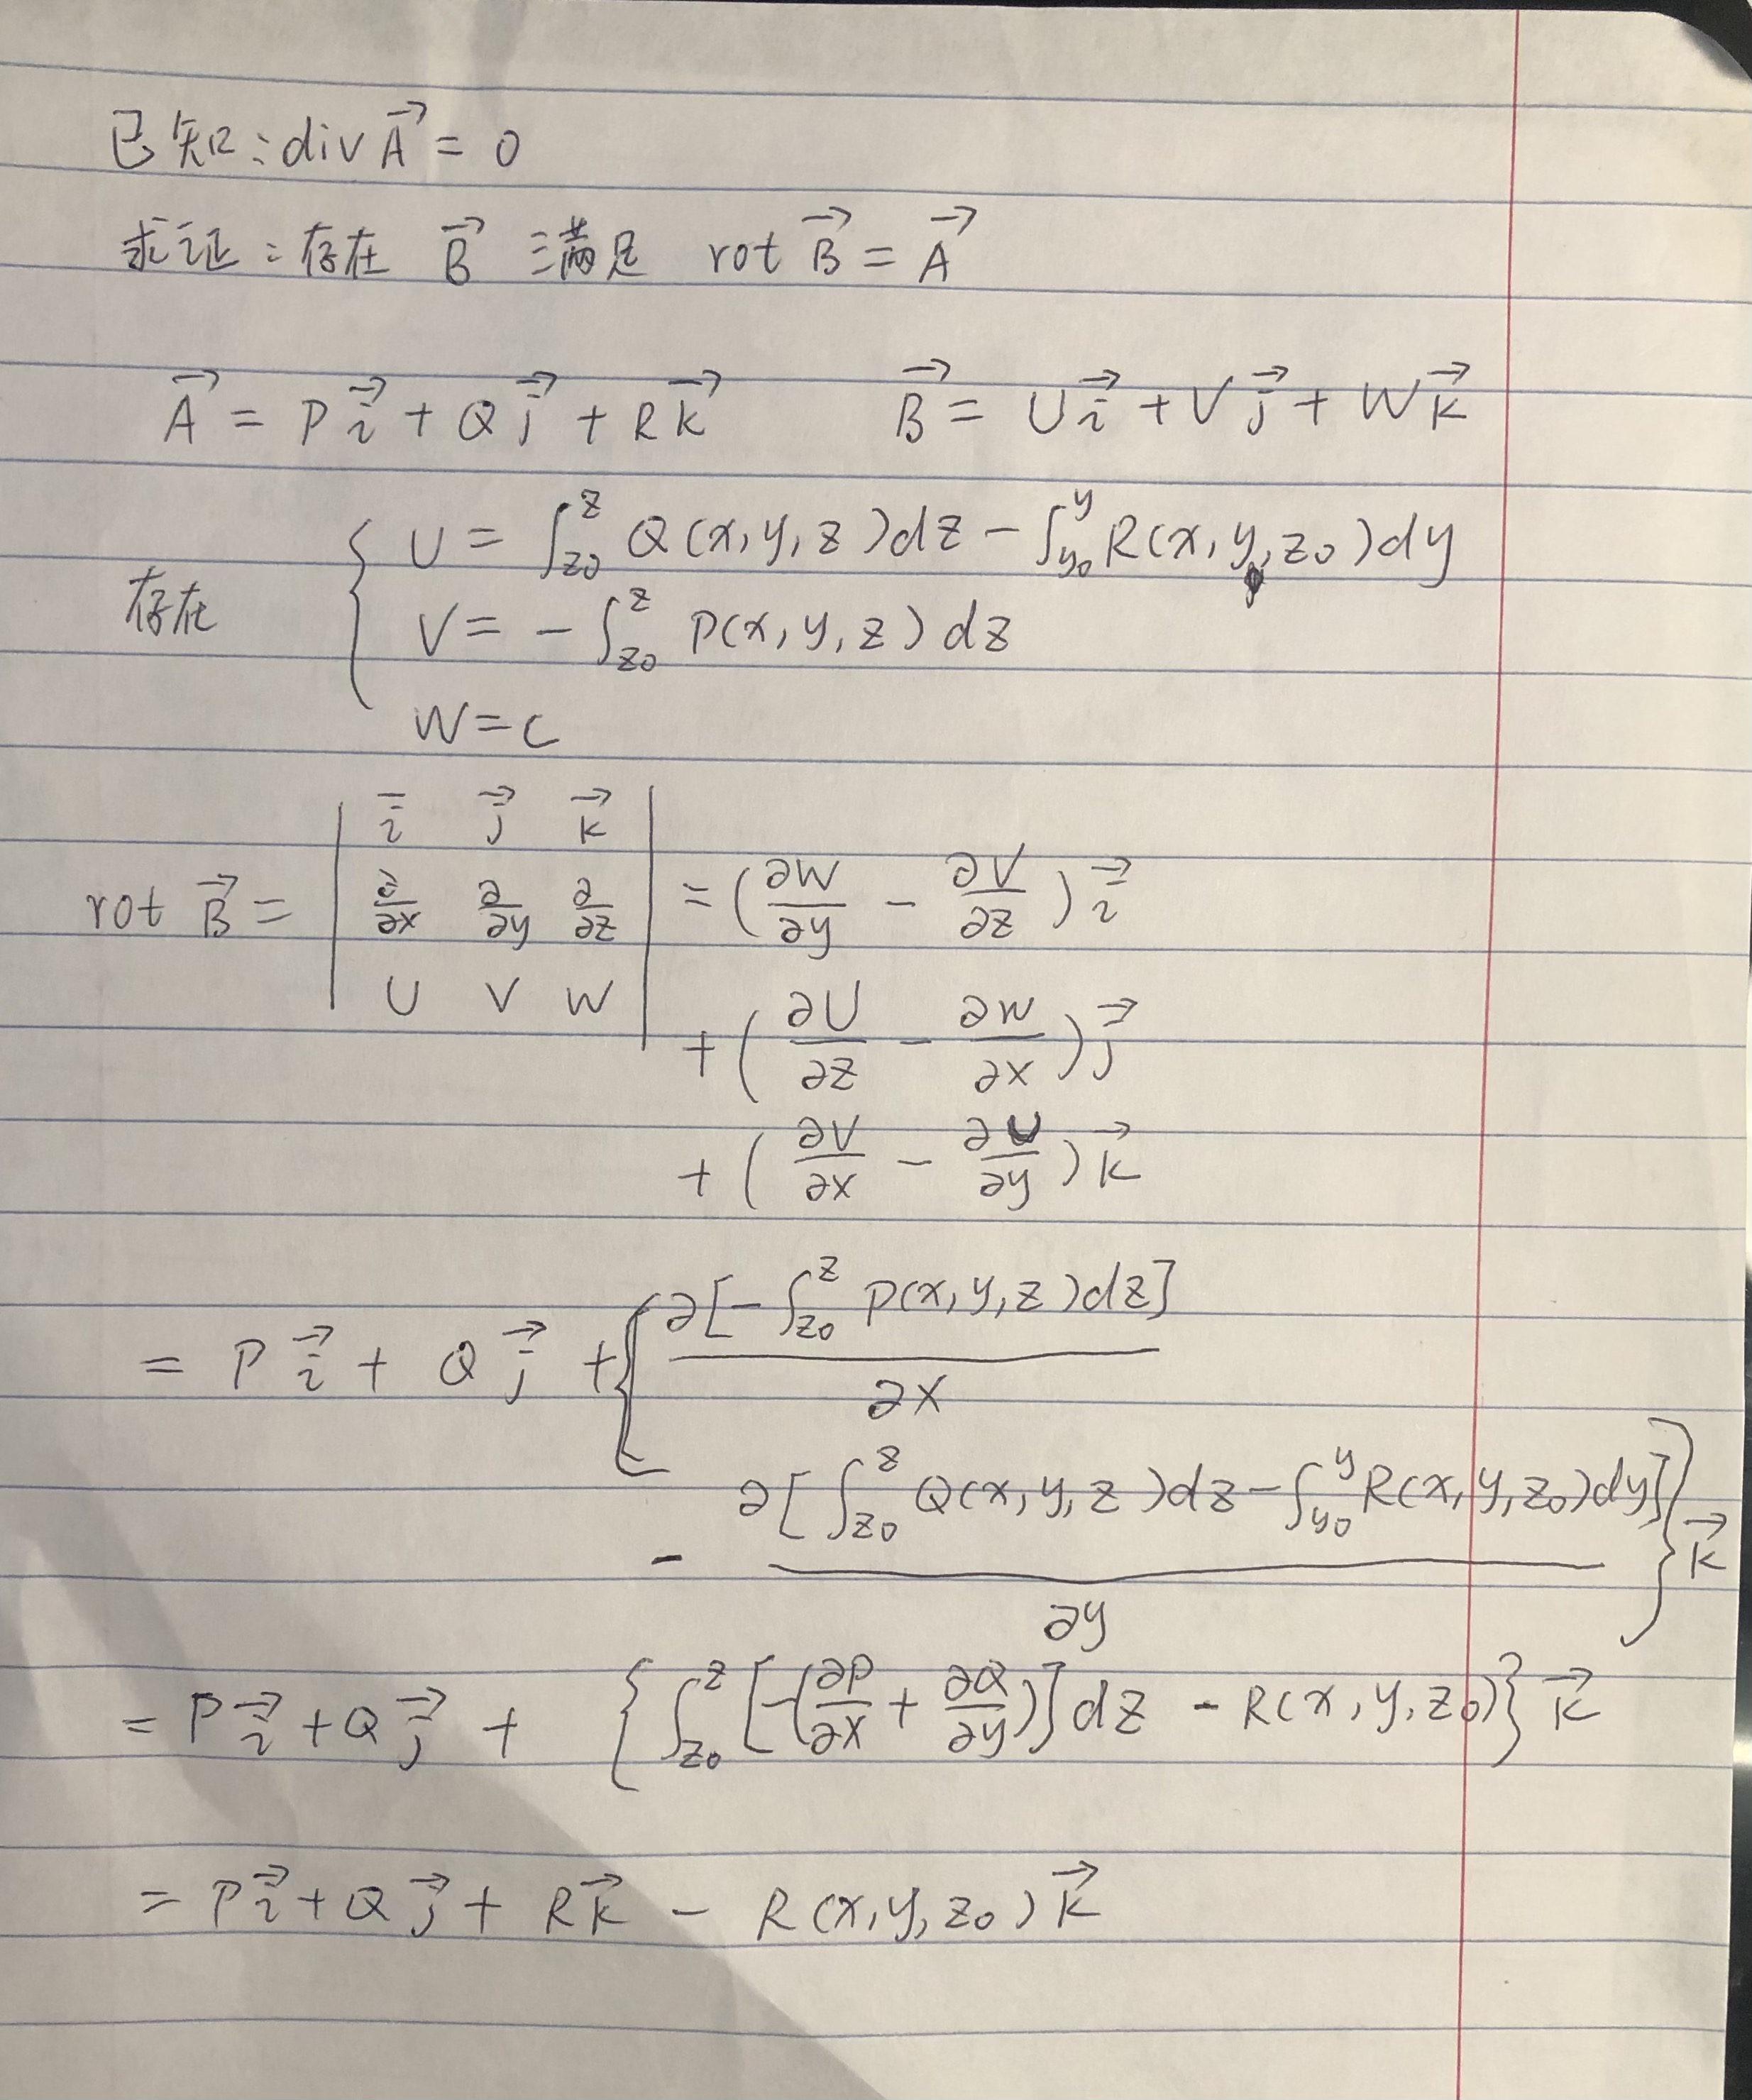 已知：div A⃗ = 0
求证：存在 B⃗ 满足 rot B⃗ = A⃗
A⃗ = P i⃗ + Q j⃗ + R k⃗    B⃗ = U i⃗ + V j⃗ + W k⃗
存在 { U = ∫_{z0}^{z} Q(x,y,z)dz - ∫_{y0}^{y} R(x,y,z0)dy
V = - ∫_{z0}^{z} P(x,y,z)dz
W = C
rot B⃗ = | i⃗ j⃗ k⃗ ; ∂/∂x ∂/∂y ∂/∂z ; U V W | = (∂W/∂y - ∂V/∂z) i⃗
+ (∂U/∂z - ∂W/∂x) j⃗
+ (∂V/∂x - ∂U/∂y) k⃗
= P i⃗ + Q j⃗ + { ∂[-∫_{z0}^{z} P(x,y,z)dz] / ∂x
- ∂[∫_{z0}^{z} Q(x,y,z)dz - ∫_{y0}^{y} R(x,y,z0)dy] / ∂y } k⃗
= P i⃗ + Q j⃗ + { ∫_{z0}^{z} [-(∂P/∂x + ∂Q/∂y)] dz - R(x,y,z0) } k⃗
= P i⃗ + Q j⃗ + R k⃗ - R(x,y,z0) k⃗